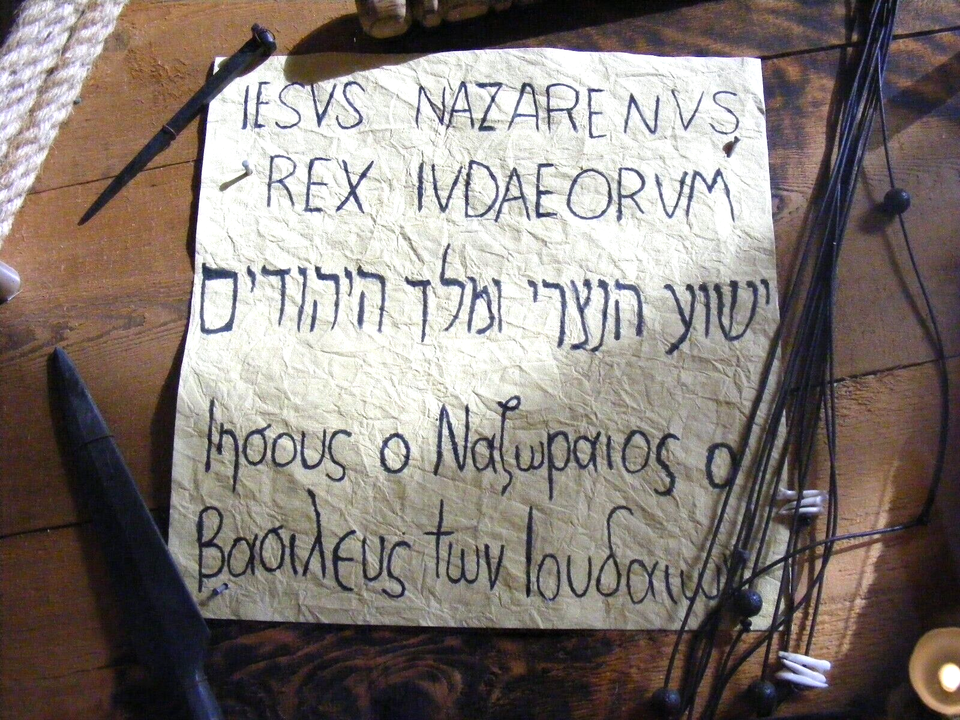 IESVS NAZARENVS
REX IVDAEORVM
ישוע הנצרי ומלך היהודים
Ιησους ο Ναζωραιος ο
Βασιλευς των Ιουδαιων